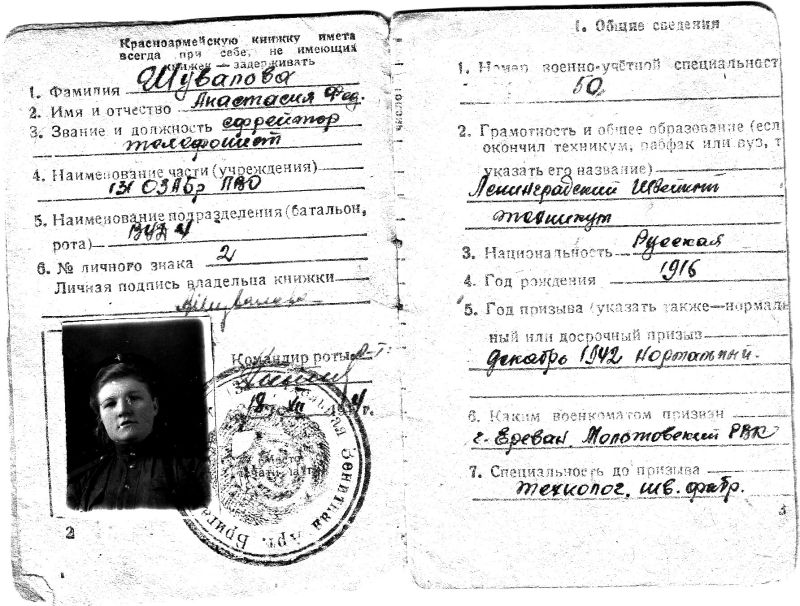 Красноармейскую книжку иметь
всегда при себе, не имеющих
книжек — задерживать
1. Фамилия Шувалова
2. Имя и отчество Анастасия Фед.
3. Звание и должность ефрейтор
телефонист
4. Наименование части (учреждения)
131 ОЗАбр ПВО
5. Наименование подразделения (батальон,
рота)
6. № личного знака 2
Личная подпись владельца книжки
АШувалова
Командир роты
2
1. Общие сведения
1. Номер военно-учётной специальност
50
2. Грамотность и общее образование (есл
окончил техникум, рабфак или вуз, т
указать его название)
Ленинградский Швейный
техникум
3. Национальность Русская
4. Год рождения 1916
5. Год призыва (указать также—нормаль
ный или досрочный призыв
декабрь 1942
6. Каким военкоматом призван
г. Ереван. Молотовский РВК
7. Специальность до призыва
технолог. шв. фабр.
3